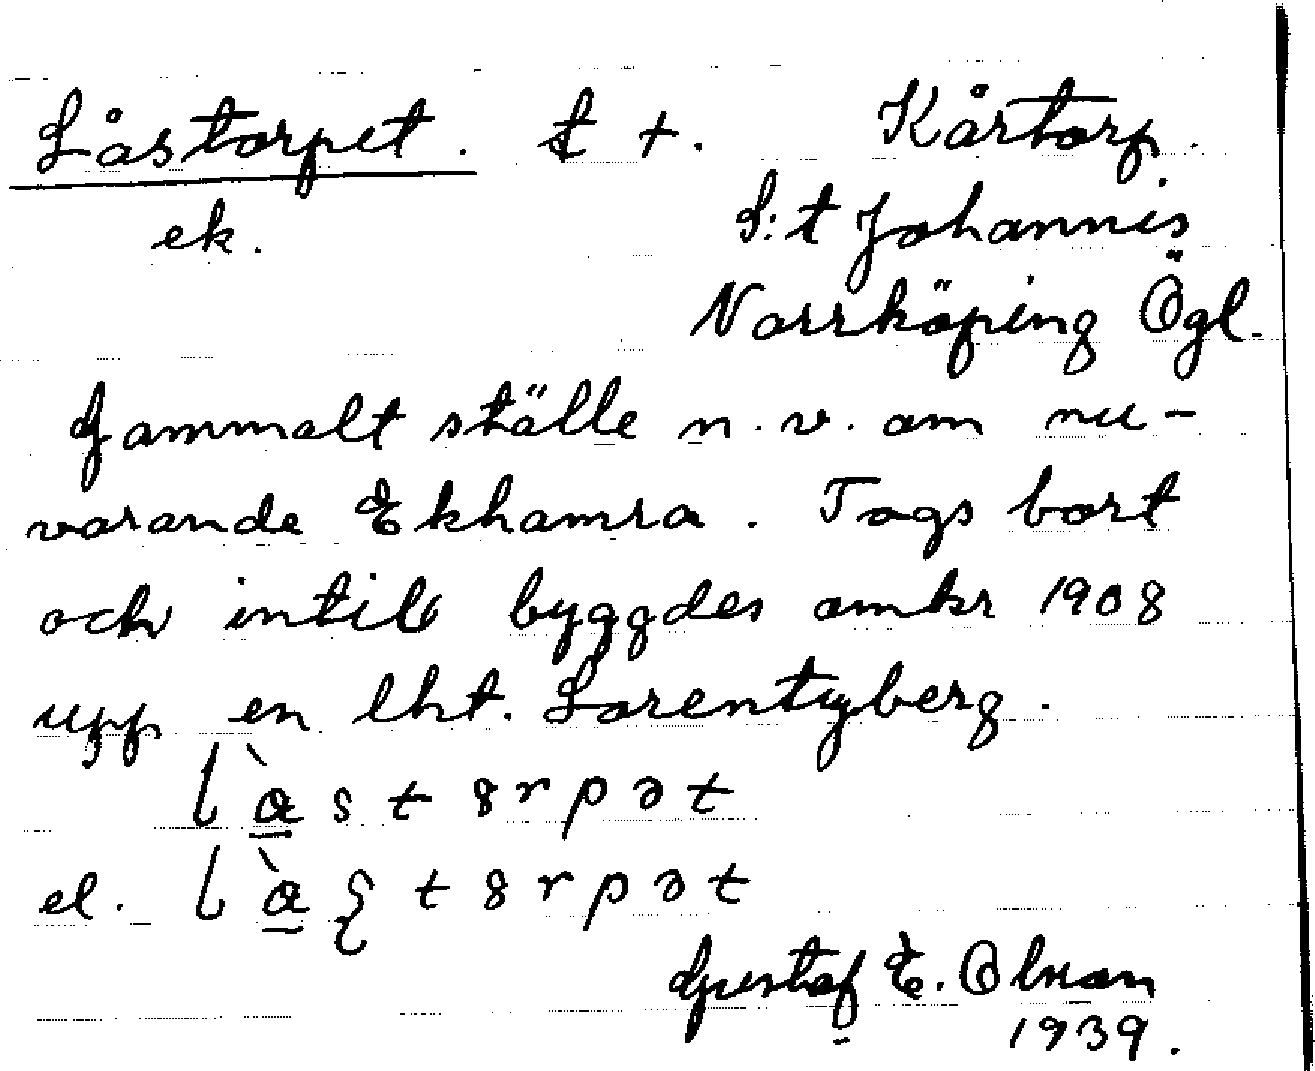 Låstorpet. t +. Kårtorp.
ek. S:t Johannis
Norrköping Ögl.
Gammalt ställe n.v. om nu-
varande Ekhamra. Togs bort
och intill byggdes omkr 1908
upp en lht. Lorentzberg.
el.
Gustaf E. Olsson
1939.